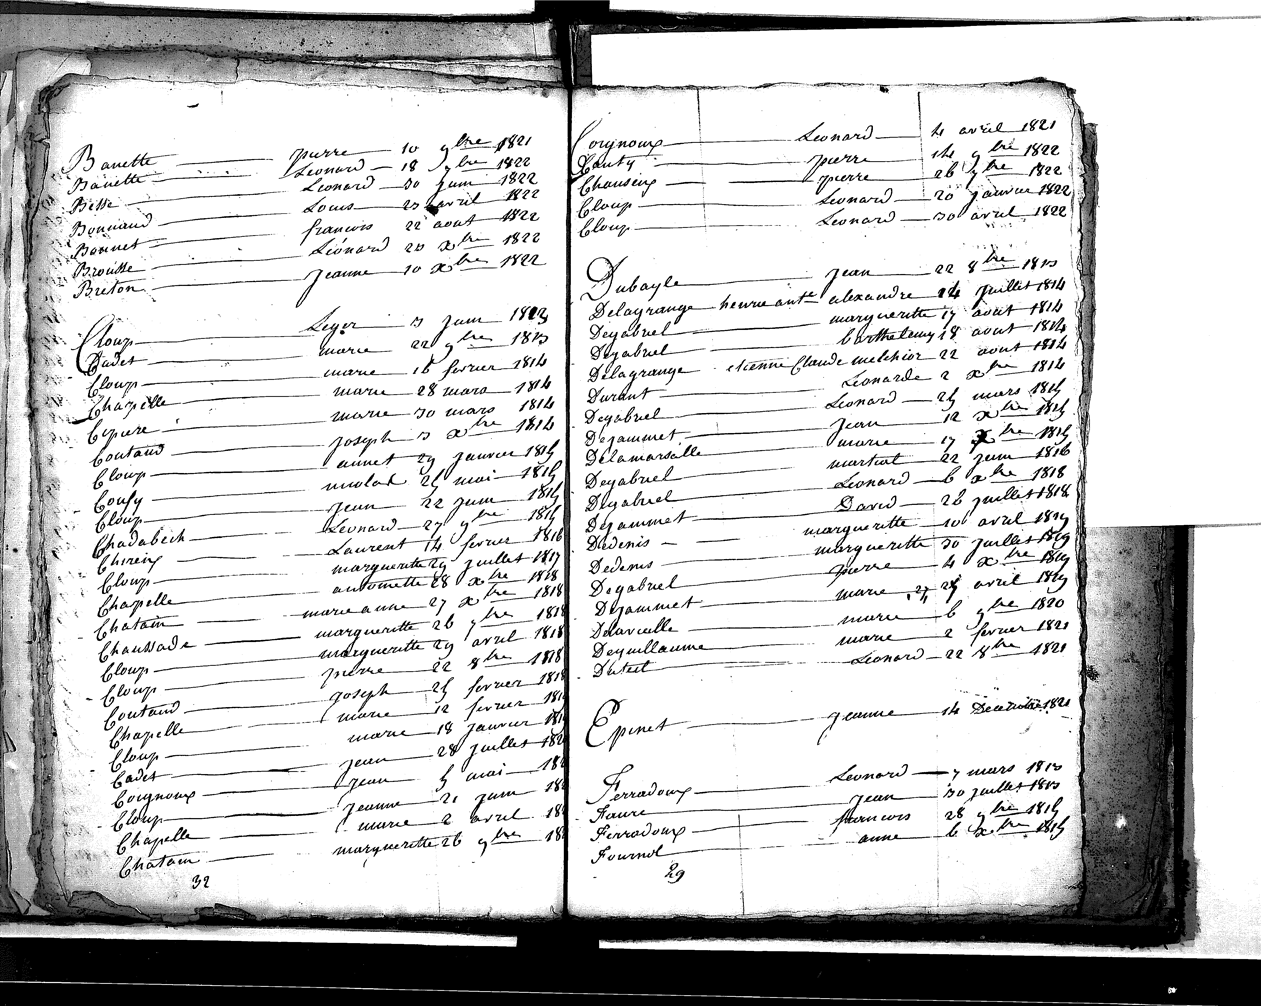 Banette pierre 10 9bre 1821
Banette Leonard 18 9bre 1822
Bette Leonard 30 juin 1822
Bonnaud Louis 23 avril 1822
Bonnet francois 22 aout 1822
Brousse Léonard 20 Xbre 1822
Breton jeanne 10 Xbre 1822
Cloup Leger 3 juin 1813
Cadet marie 22 9bre 1813
Cloup marie 16 fevrier 1814
Chapelle marie 28 mars 1814
Cepiere marie 30 mars 1814
Coutaud joseph 3 Xbre 1814
Cloup annet 29 janvier 1815
Coufy nicolas 25 mai 1815
Cloup jean 22 juin 1815
Chadabech Leonard 27 9bre 1815
Chireix Laurent 14 fevrier 1816
Cloup marguerite 29 juillet 1817
Chapelle antoinette 28 Xbre 1818
Chatain marie anne 27 Xbre 1818
Chaussade marguerite 26 9bre 1818
Cloup marguerite 29 avril 1818
Cloup pierre 22 8bre 1818
Coutaud joseph 25 fevrier 1818
Chapelle marie 12 fevrier
Cloup marie 18 janvier
Cadet jean 28 juillet
Coignoux jean 5 mai
Cloup jeanne 21 juin
Chapelle marie 2 avril
Chatain marguerite 26 9bre
32
Coignoux Leonard 4 avril 1821
Canty pierre 14 9bre 1822
Chauseix pierre 26 9bre 1822
Cloup Leonard 20 janvier 1822
Cloup Leonard 30 avril 1822
Dubayle jean 22 8bre 1813
Delagrange henrie ante alexandre 14 juillet 1814
Degabriel marguerite 17 aout 1814
Degabriel barthelemy 18 aout 1814
Delagrange etienne Claude melchior 22 aout 1814
Durant Leonarde 2 Xbre 1814
Degabriel Leonard 25 mars 1815
Dejammet jean 12 Xbre 1815
Delamarsalle marie 17 Xbre 1815
Degabriel martial 22 juin 1816
Degabriel Leonard 6 Xbre 1818
Dejammet David 26 juillet 1818
Dedenis marguerite 10 avril 1819
Dedenis marguerite 30 juillet 1819
Degabriel pierre 4 Xbre 1819
Dejammet marie 25 avril 1819
marie 6 9bre 1820
Deguillaume marie 2 fevrier 1821
Duteil Leonard 22 8bre 1821
Epinet jeanne 14 Decembre 1821
Ferradoux Leonard 7 mars 1813
Faure jean 30 juillet 1813
Ferradoux francois 28 9bre 1815
Fournol anne 6 Xbre 1815
29